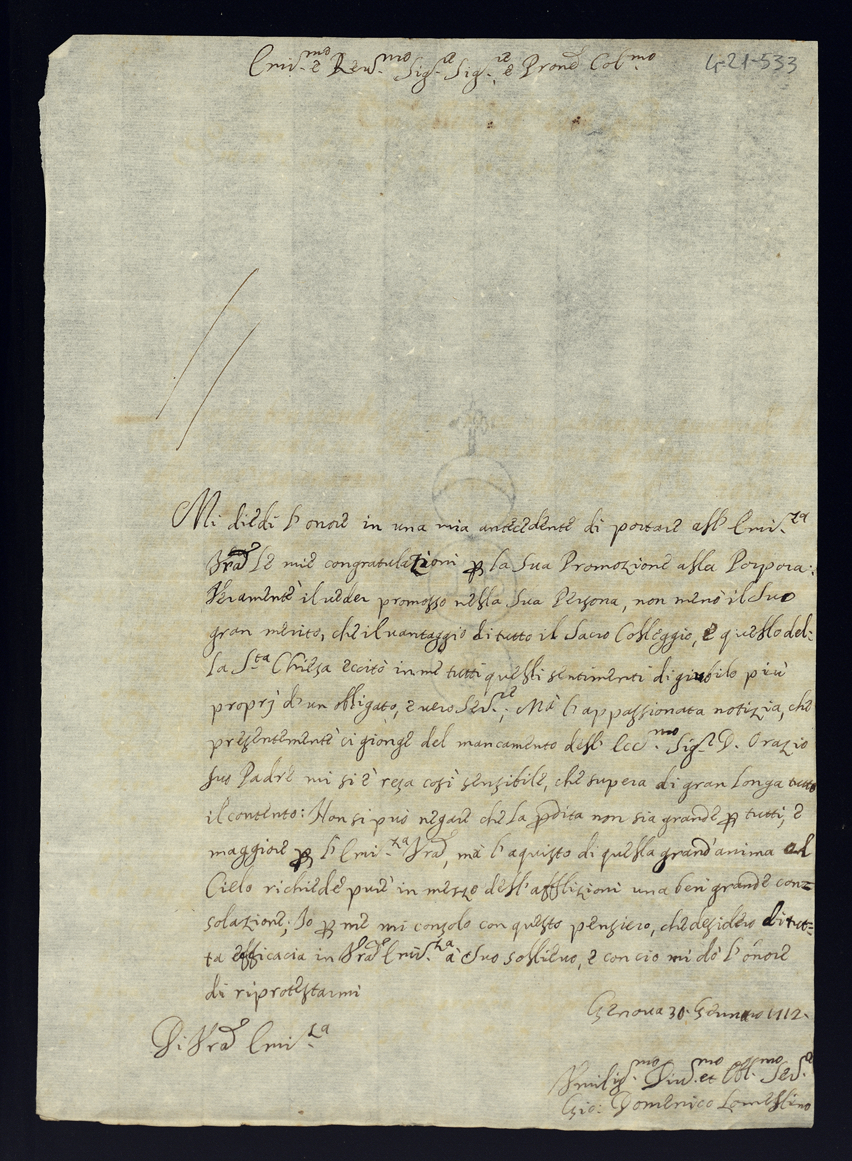 Emin.mo e Rev.mo Sig.r Sig.re e Prone Col.mo
4-21-533
Mi diedi l'onore in una mia antecedente di portare all' Emin.za
Vra le mie congratulazioni p la Sua Promozione alla Porpora:
Veramente il veder promosso nella Sua Persona, non meno il Suo
gran merito, che il vantaggio di tutto il Sacro Collegio, e quello del-
la S.ta Chiesa eccitò in me tutti quelli sentimenti di giubilo più
proprj d'un obligato, e vero Ser.re; Mà l'appassionata notizia, che
presentemente ci gionge del mancamento dell' Ecc.mo Sig.r D. Orazio
suo Padre mi si è resa così sensibile, che supera di gran longa tutto
il contento: Non si può negare che la pdita non sia grande p tutti, e
maggiore p l'Emin.za Vra, mà l'aquisto di quella grand'anima al
Cielo richiede pure in mezzo dell'afflizioni una ben grande con-
solazione; Io p me mi consolo con questo pensiero, che desidero di tut-
ta efficacia in Vra Emin.za à Suo sollievo, e con ciò mi dò l'onore
di riprotestarmi
Genova 30. Gennaro 1712.
Di Vra Emin.za
Humilis.mo Div.mo et Obl.mo Ser.e
Gio: Domenico Lomellino